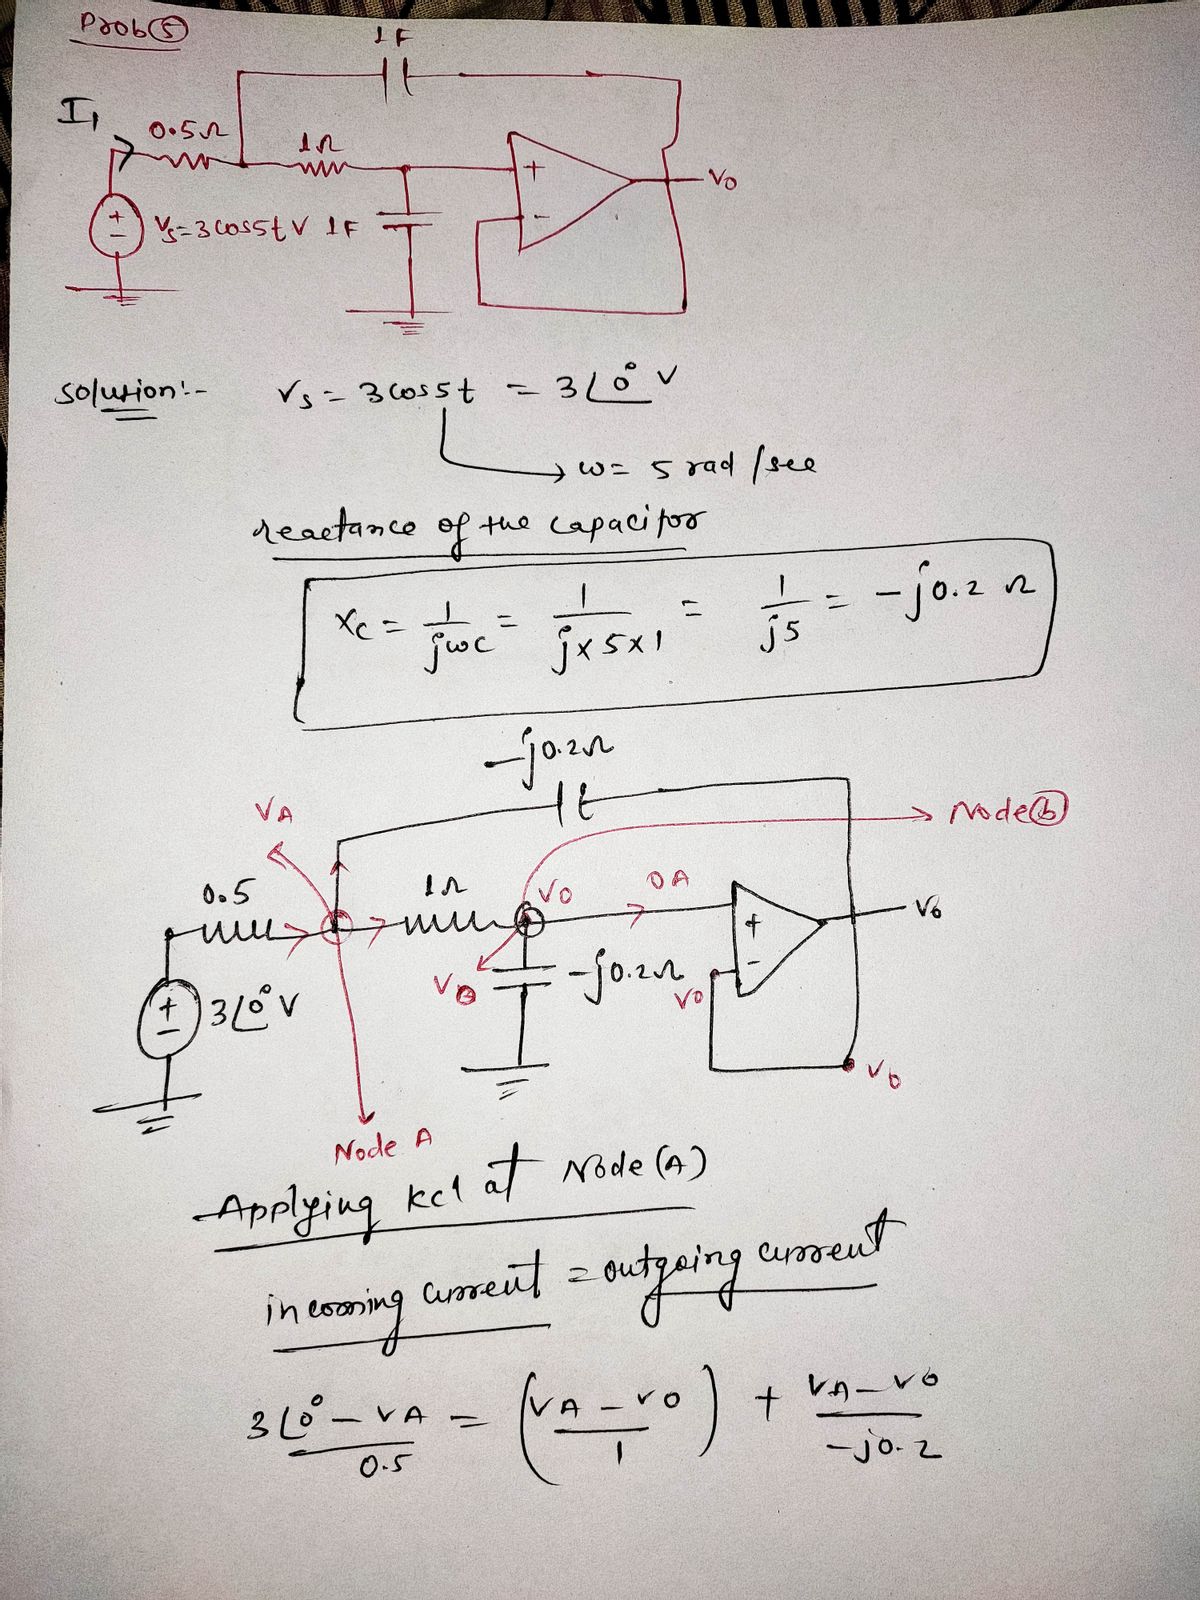 Prob⑤
1F
I₁
0.5Ω
1Ω
+
Vo
+
-
Vs=3cos5t V
1F
-
solution:-
Vs = 3cos5t = 3∠0° V
→ ω = 5 rad/sec
reactance of the capacitor
Xc = 1/jωc = 1/j×5×1 = 1/j5 = -j0.2 Ω
-j0.2Ω
VA
Node ⓑ
0.5
1Ω
Vo
0A
Vo
+
3∠0° V
+
-
-j0.2Ω
-
Vo
Vo
Node A
Applying kcl at Node (A)
incoming current = outgoing current
3∠0° - VA / 0.5 = (VA - Vo / 1) + VA - Vo / -j0.2